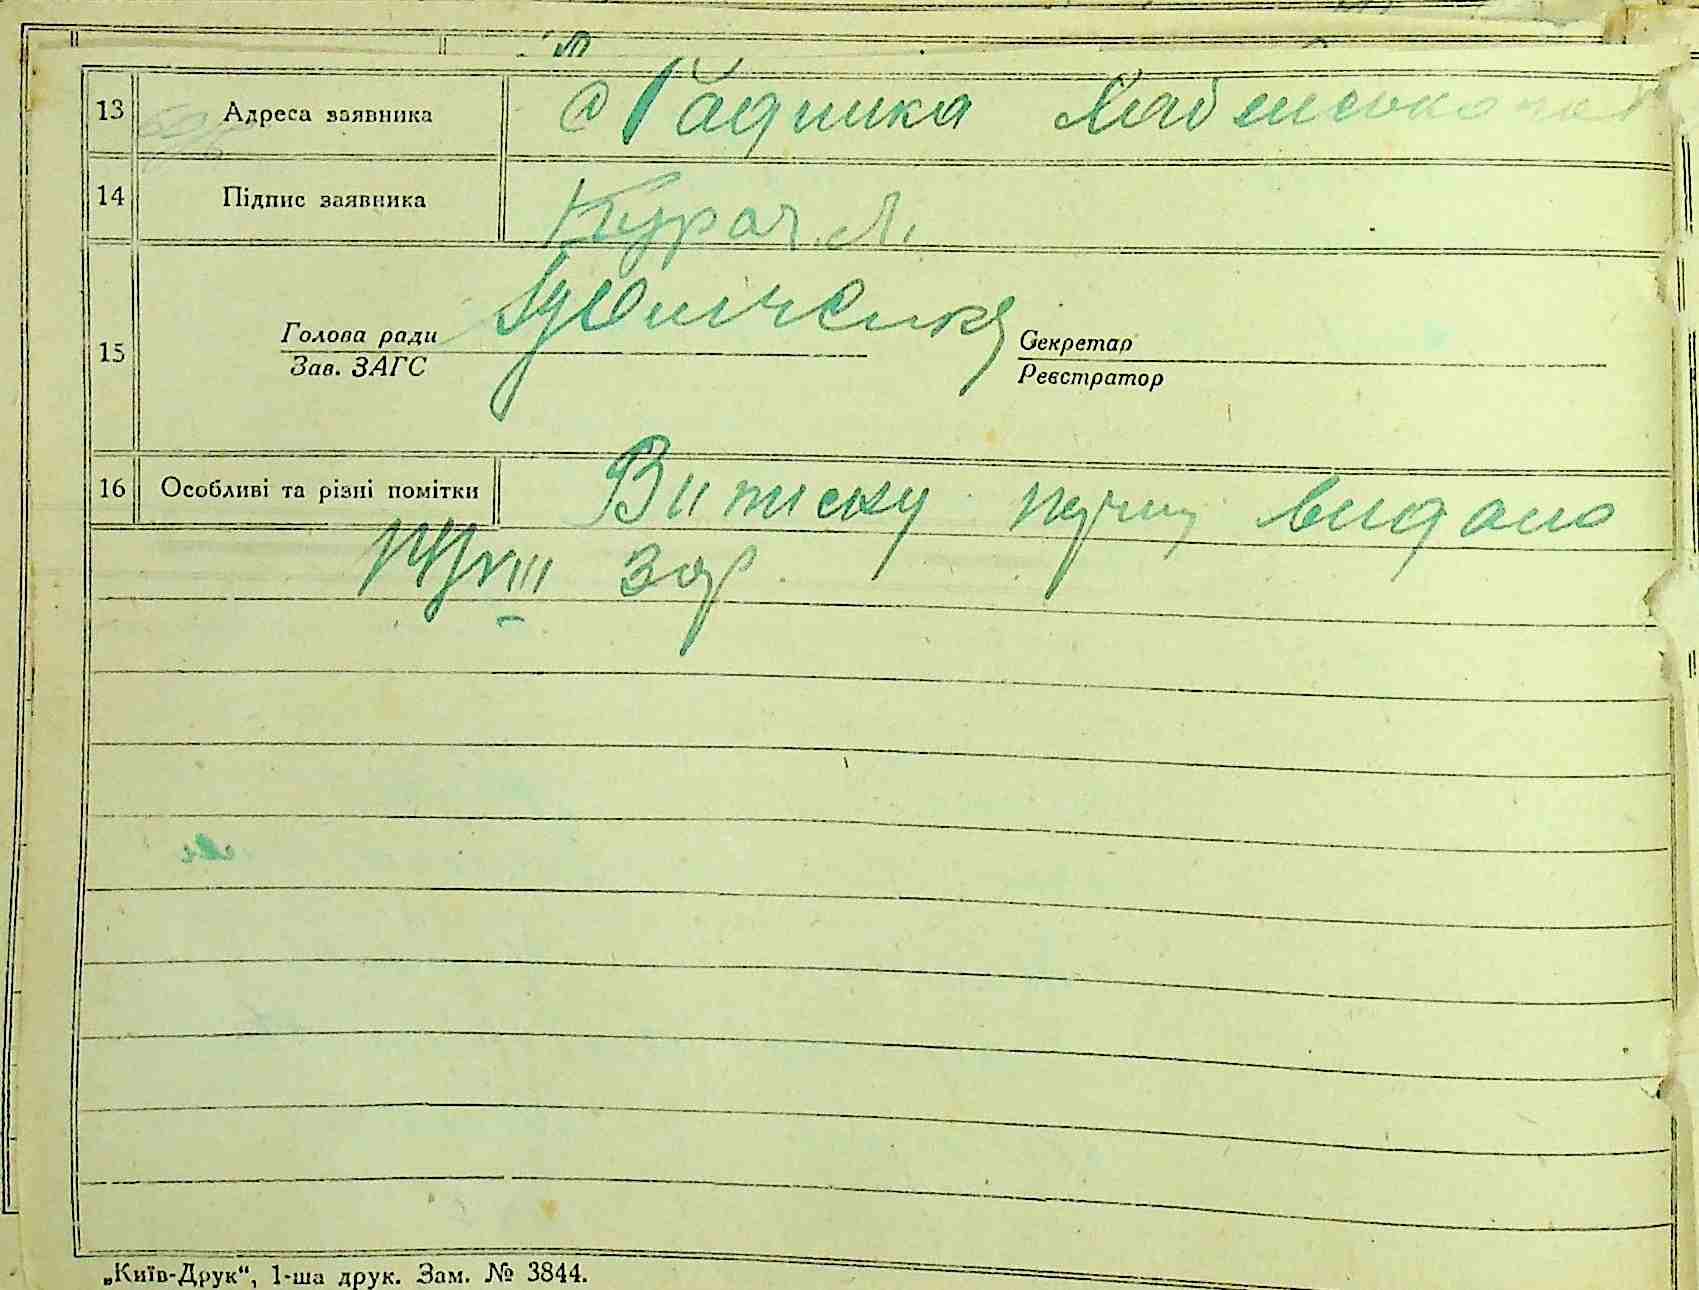 13 Адреса заявника с Радинка Хабенського
14 Підпис заявника Курач. Л.
Голова ради
15 Секретар
Зав. ЗАГС Реєстратор
16 Особливі та різні помітки Виписку видано
VIII 30р.
„Київ-Друк“, 1-ша друк. Зам. № 3844.